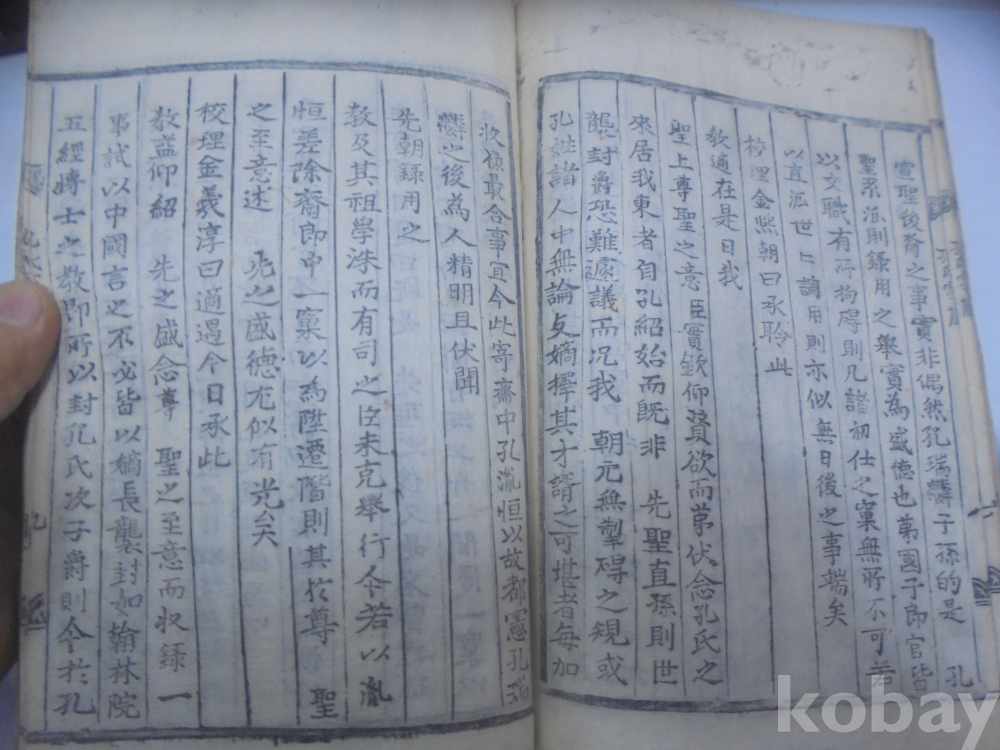 宣聖後裔之事實非偶然孔瑞麟子孫的是 孔
聖系派則錄用之舉實為盛德也第國子郎官皆
以文職有所拘碍則凡諸初仕之窠無所不可若
以直派世世調用則亦似無日後之事端矣
校理金熙朝曰承聆此
敎適在是日我
聖上尊聖之意臣實欽仰贊欲而第伏念孔氏之
來居我東者自孔紹始而旣非 先聖直孫則世
襲封爵恐難遽議而况我 朝元無掣碍之規或
孔姓諸人中無論支嫡擇其才諝之可堪者每加
收 最合事宜今此寄齋中孔胤恒以故都憲孔瑞
麟之後為人精明且伏聞
先朝錄用之
敎及其祖學洙而有司之臣未克舉行今若以胤
恒差除齋郎中一窠以為陞遷階則其於尊 聖
之至意述 先之盛德尤似有光矣
校理金羲淳曰適過今日承此
敎益仰紹 先之盛念尊 聖之至意而收錄一
事試以中國言之不必皆以嫡長襲封如翰林院
五經博士之敎即所以封孔氏次子爵則今於孔
kobay